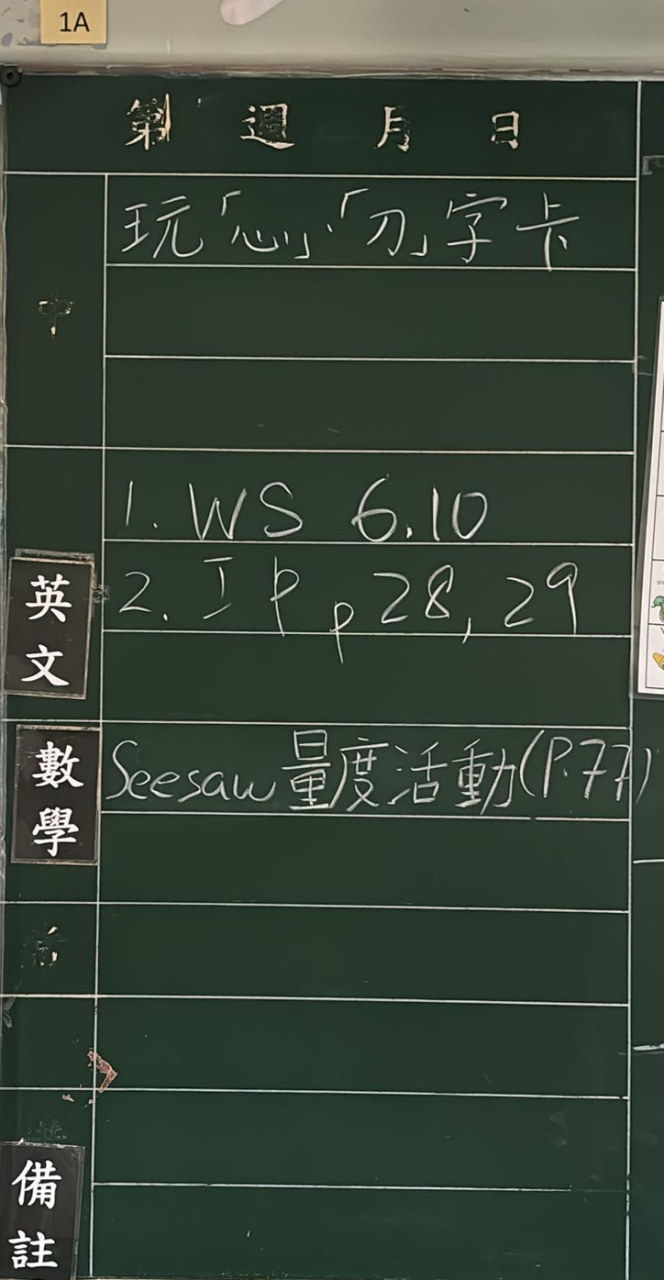 1A
第 週 月 日
中
玩「心」、「刀」字卡
英文
1. WS 6.10
2. IP p 28, 29
數學
Seesaw量度活動(P.77)
常
備註